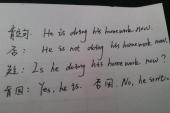 肯定句: He is doing his homework now.
否: He is not doing his homework now.
疑: Is he doing his homework now?
肯回: Yes, he is. 否回: No, he isn't.